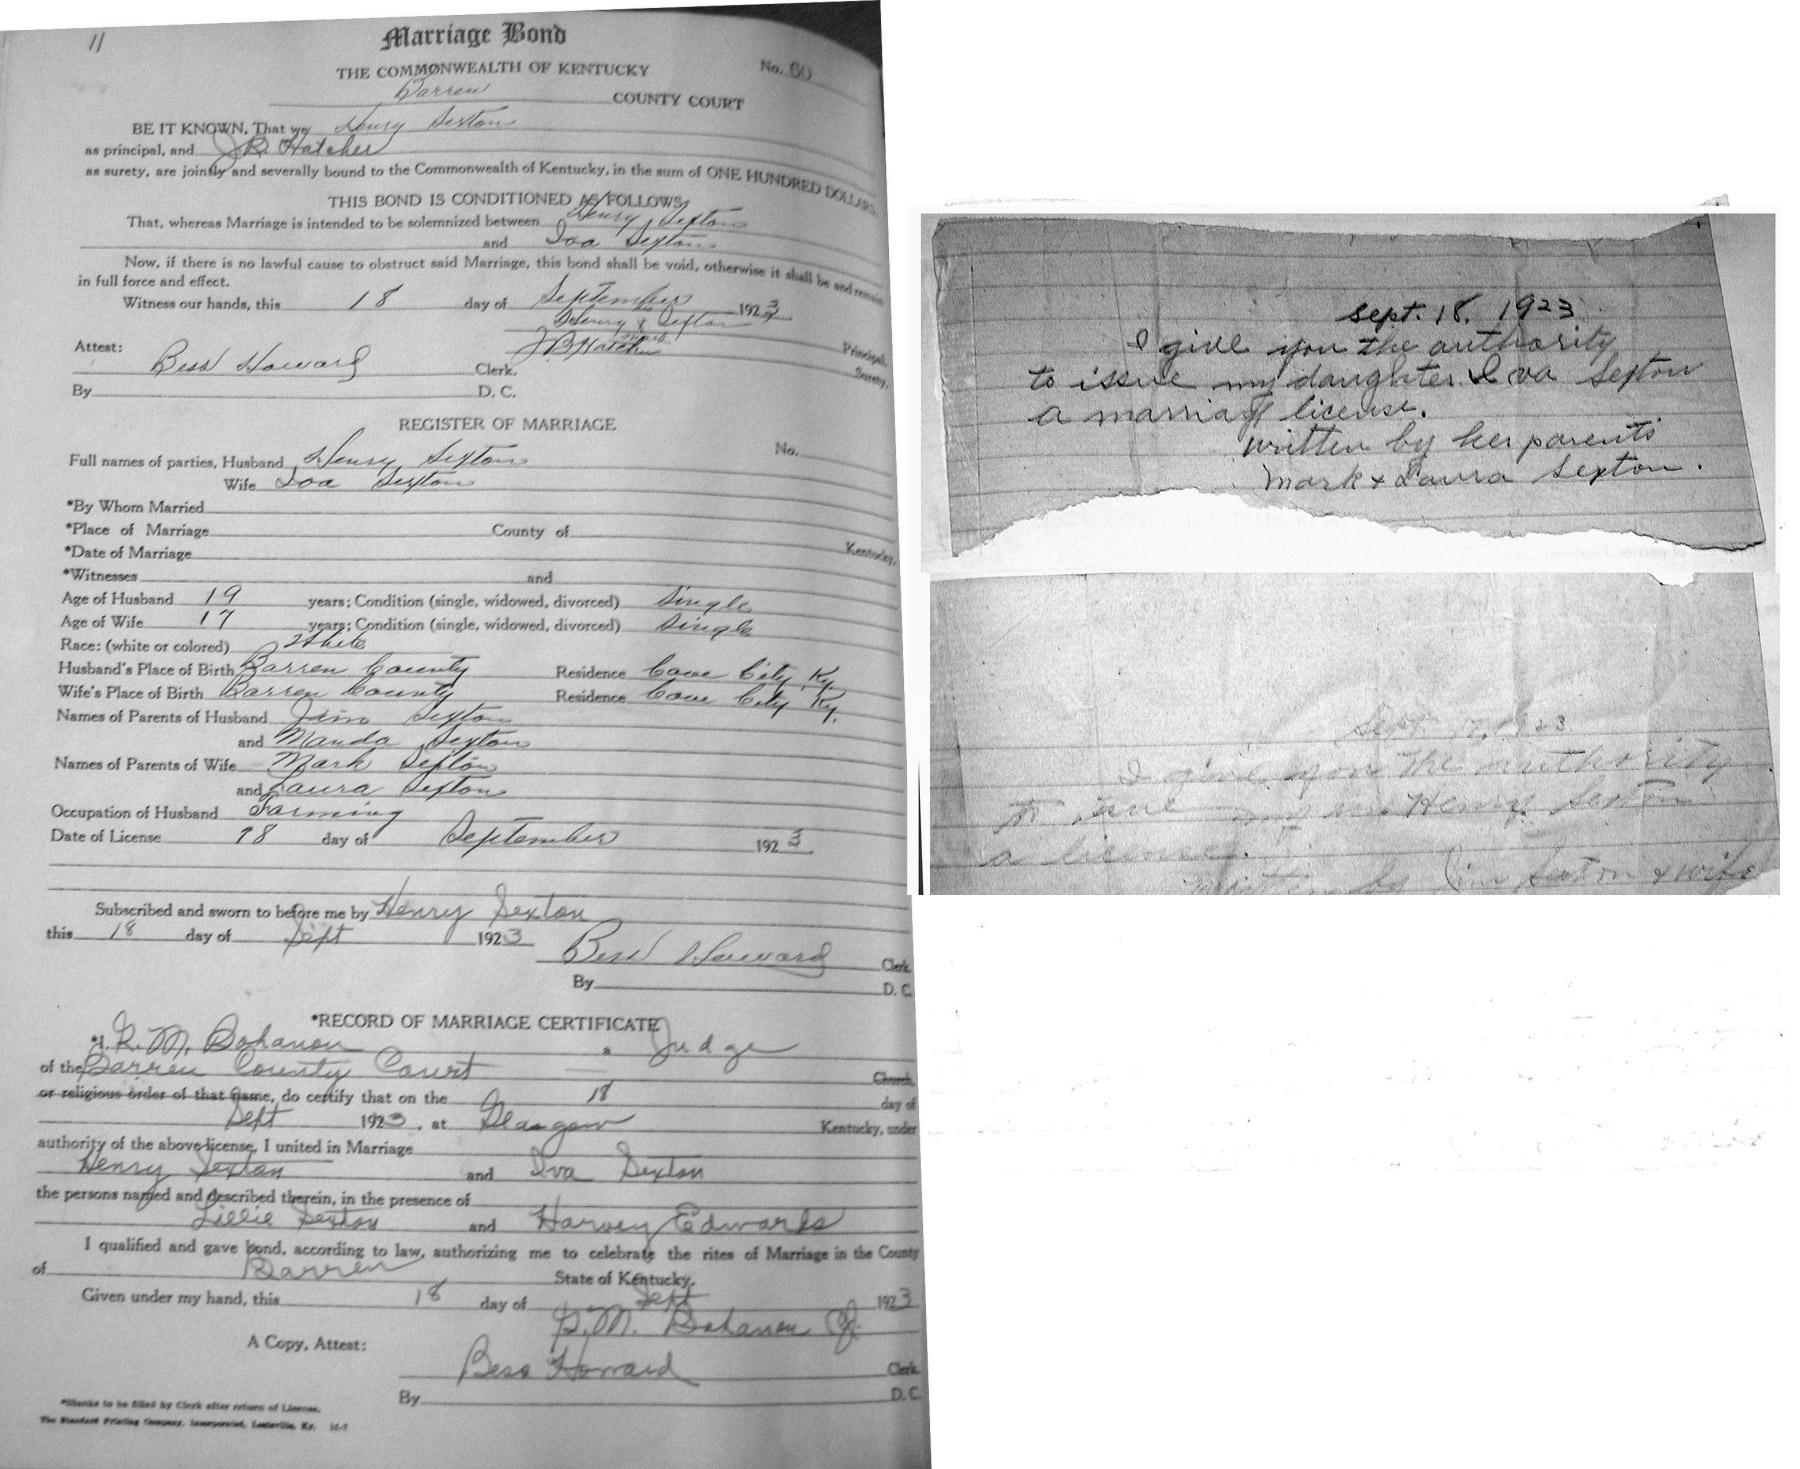 11
Marriage Bond
THE COMMONWEALTH OF KENTUCKY
No. 60
Barren COUNTY COURT
BE IT KNOWN, That we Henry Sexton
as principal, and J.B. Hatcher
as surety, are jointly and severally bound to the Commonwealth of Kentucky, in the sum of ONE HUNDRED DOLLARS.
THIS BOND IS CONDITIONED AS FOLLOWS
That, whereas Marriage is intended to be solemnized between Henry Sexton
and Iva Sexton
Now, if there is no lawful cause to obstruct said Marriage, this bond shall be void, otherwise it shall be and remain
in full force and effect.
Witness our hands, this 18 day of September 1923
his
Henry X Sexton Principal,
mark
Attest: J B Hatcher Surety.
Bess Howard Clerk.
By D. C.
REGISTER OF MARRIAGE
No.
Full names of parties, Husband Henry Sexton
Wife Iva Sexton
*By Whom Married
*Place of Marriage County of Kentucky.
*Date of Marriage
*Witnesses and
Age of Husband 19 years; Condition (single, widowed, divorced) Single
Age of Wife 17 years; Condition (single, widowed, divorced) Single
Race: (white or colored) White
Husband's Place of Birth Barren County Residence Cave City, Ky
Wife's Place of Birth Barren County Residence Cave City, Ky.
Names of Parents of Husband Jim Sexton
and Manda Sexton
Names of Parents of Wife Mark Sexton
and Laura Sexton
Occupation of Husband Farming
Date of License 18 day of September 1923
Subscribed and sworn to before me by Henry Sexton
this 18 day of Sept 1923
Bess Howard Clerk.
By D. C.
*RECORD OF MARRIAGE CERTIFICATE
*I, R. M. Bohanon a Judge
of the Barren County Court Church,
or religious order of that name, do certify that on the 18 day of
Sept 1923, at Glasgow Kentucky, under
authority of the above license, I united in Marriage
Henry Sexton and Iva Sexton
the persons named and described therein, in the presence of
Lillie Sexton and Harvey Edwards
I qualified and gave bond, according to law, authorizing me to celebrate the rites of Marriage in the County
of Barren State of Kentucky.
Given under my hand, this 18 day of Sept 1923
R. M. Bohanon CJ.
A Copy, Attest:
Bess Howard Clerk.
By D. C.
*Blanks to be filled by Clerk after return of License.
The Standard Printing Company, Incorporated, Louisville, Ky.
Sept. 18, 1923
I give you the authority
to issue my daughter Iva Sexton
a marriage license.
written by her parents
Mark & Laura Sexton.
Sept. 1923
I give you the authority
to issue my son Henry Sexton
a license.
written by Jim Sexton & wife